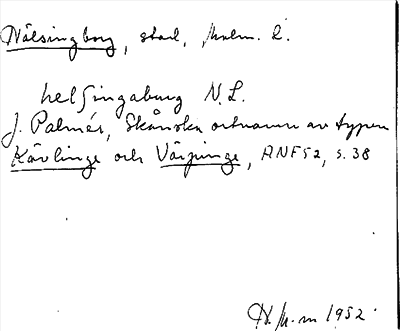 Hälsingborg, stad, Malm. l.
helsingaburg N.L.
J. Palmér, Skånska ortnamn av typen
Kävlinge och Värpinge, ANF 52, s. 38
1952